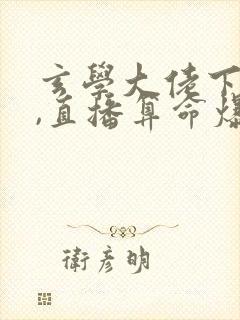 玄學大佬下
,直播算命爆
衛彥明